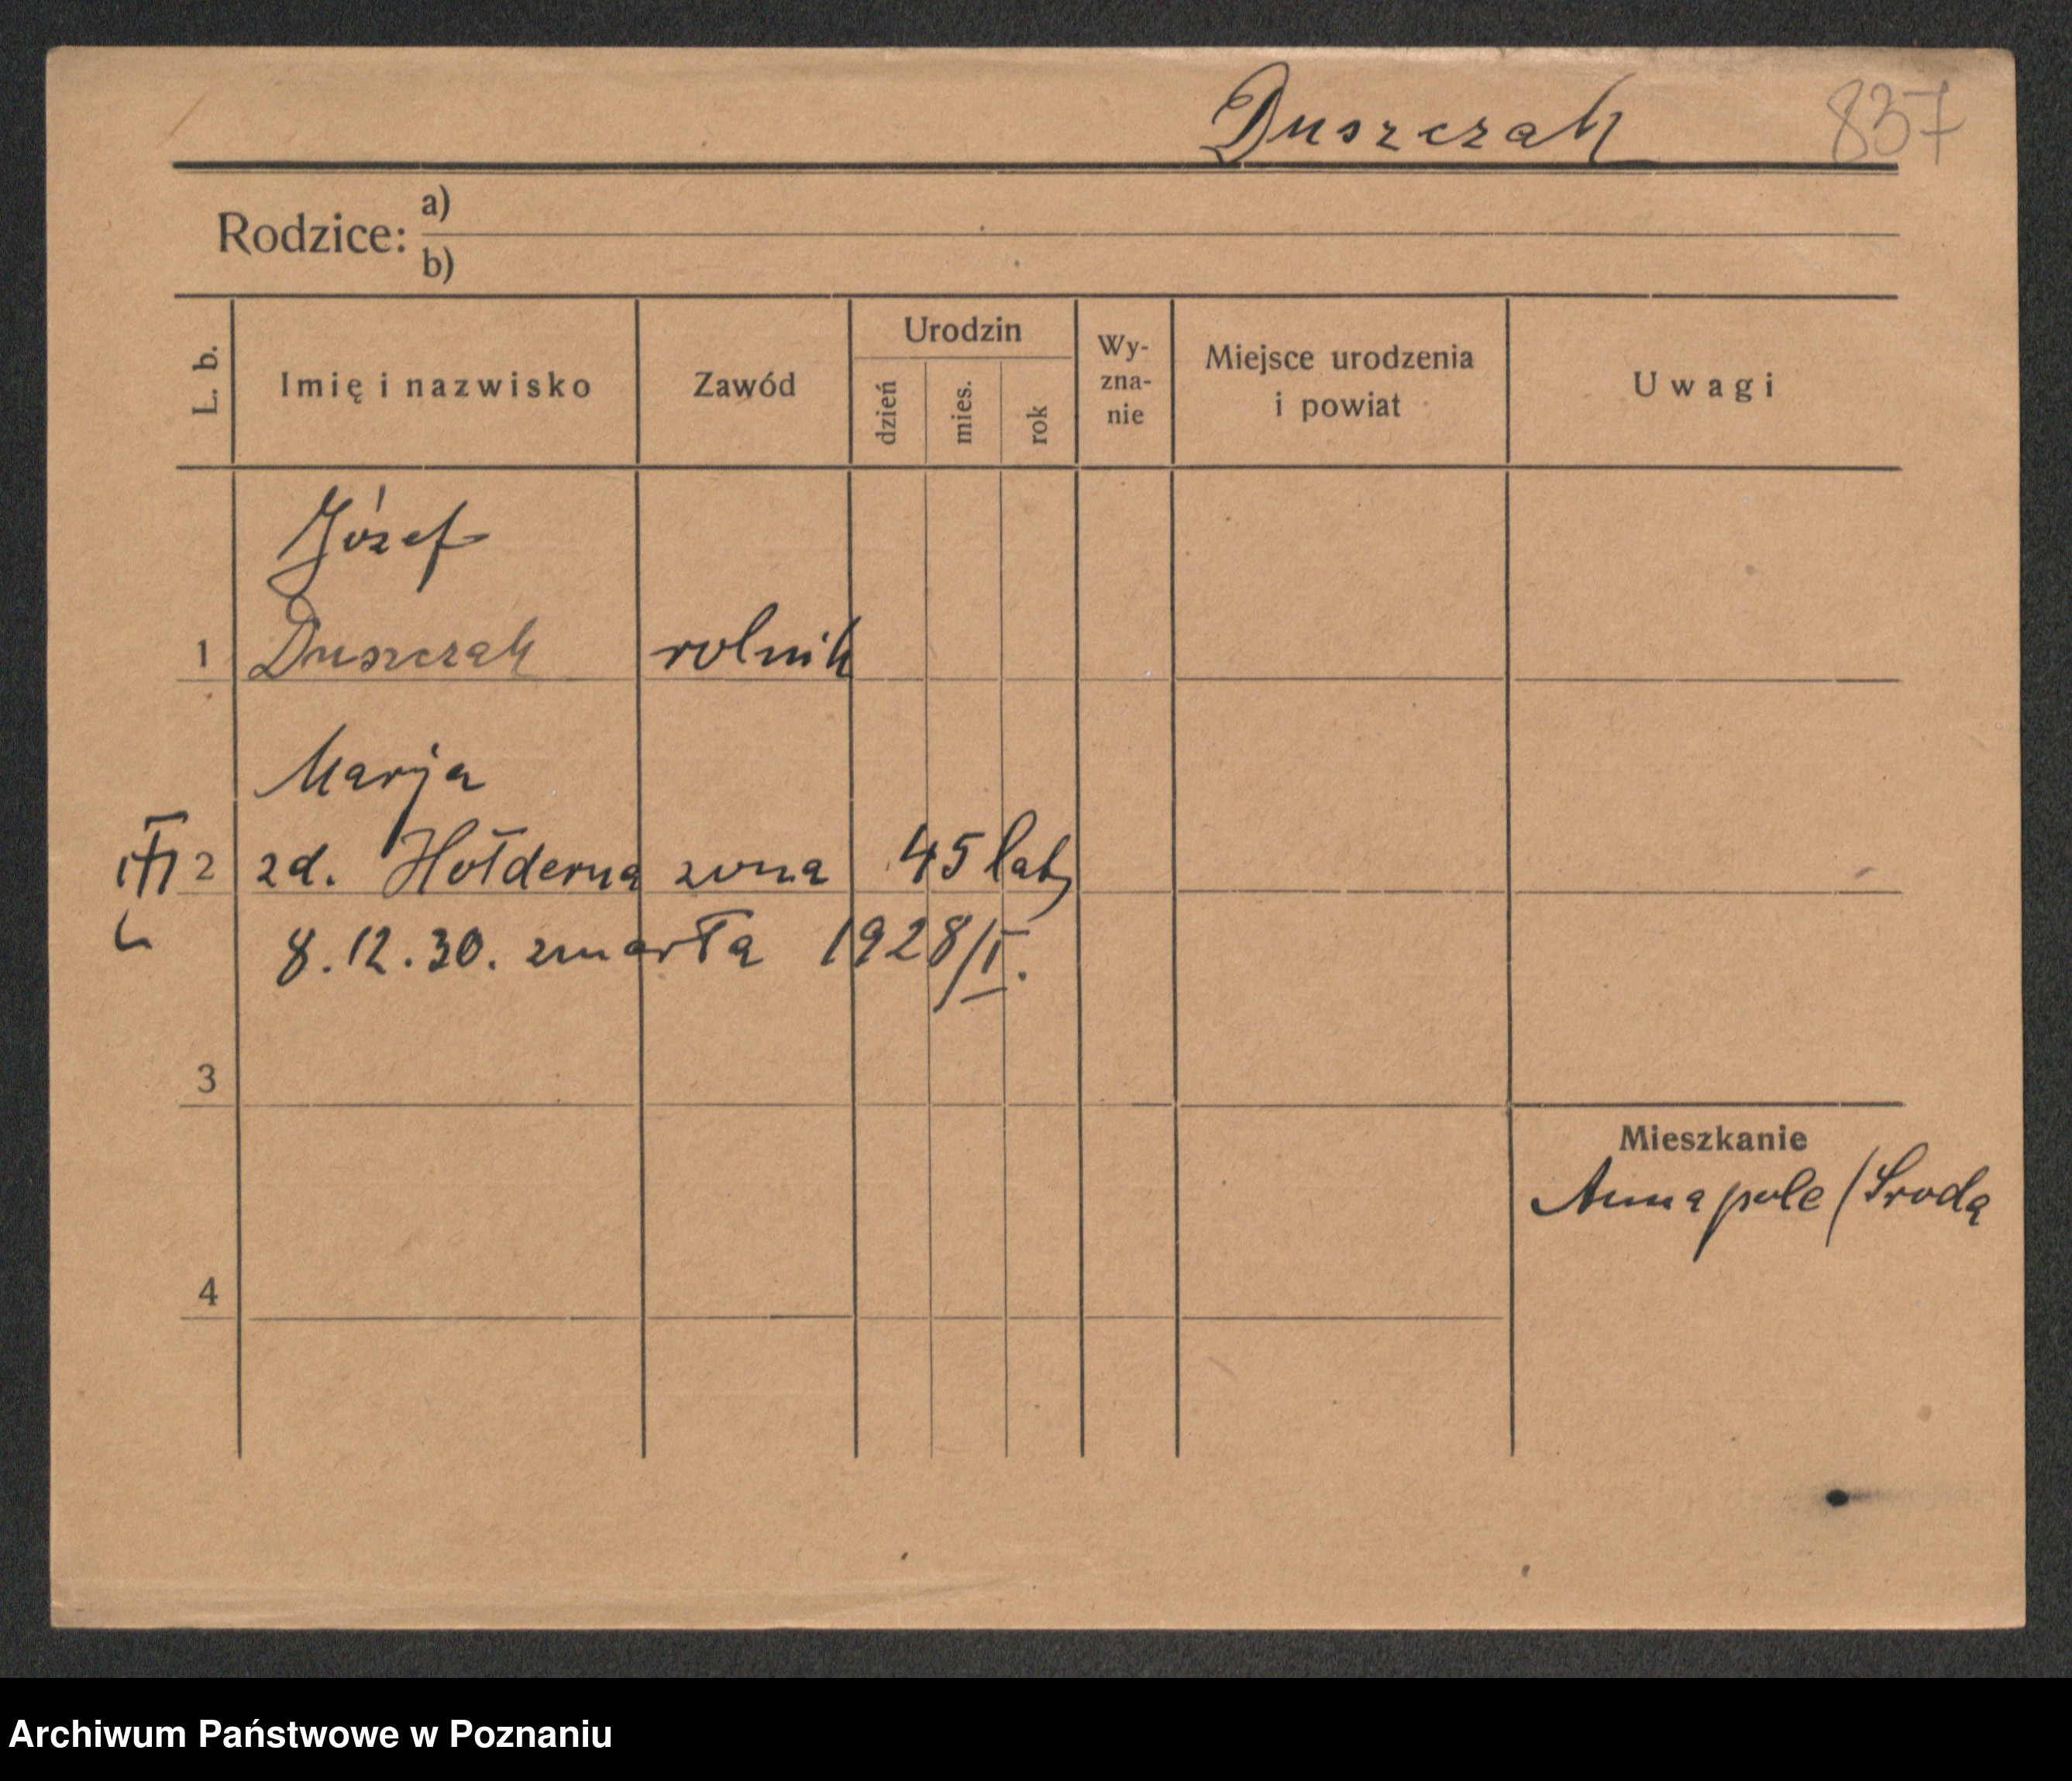 Duszczak 837
Rodzice: a)
b)
L. b. Imię i nazwisko Zawód Urodzin dzień mies. rok Wy-zna-nie Miejsce urodzenia i powiat Uwagi
Józef
1 Duszczak rolnik
Marja
2 zd. Hołderna zona 45 lat
8.12.30. zmarła 1928/I.
3
Mieszkanie
Annapole / Sroda
4
Archiwum Państwowe w Poznaniu